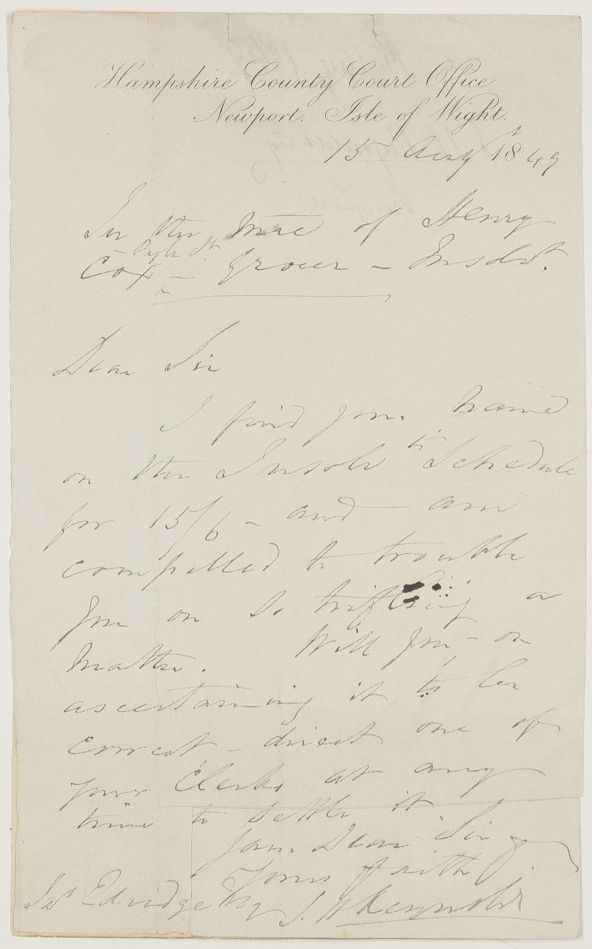 Hampshire County Court Office
Newport. Isle of Wight.
15 Augt 1849
In the Mre of Henry
Pyle St.
Cox – Grocer – Insolvt.
Dear Sir
I find your name
on the Insolvts Schedule
for 15/6 – and am
compelled to trouble
you on so trifling a
matter. Will you – on
ascertaining it to be
correct – direct one of
your Clerks at any
time to settle it
I am Dear Sir
Yours faith
Jas Eldridge Esq J. H Reynolds